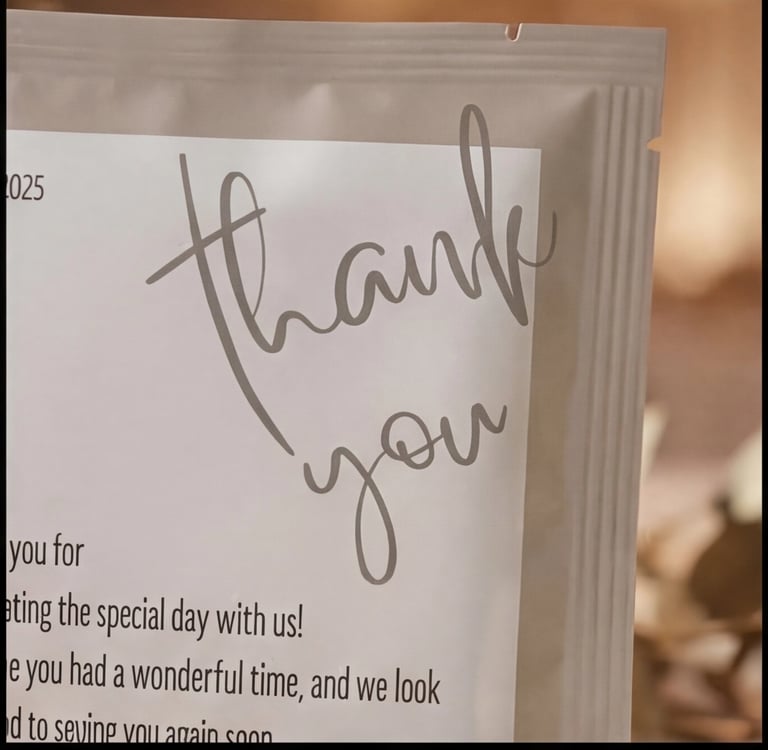 2025
thank
you
you for
ating the special day with us!
e you had a wonderful time, and we look
d to seving you again soon